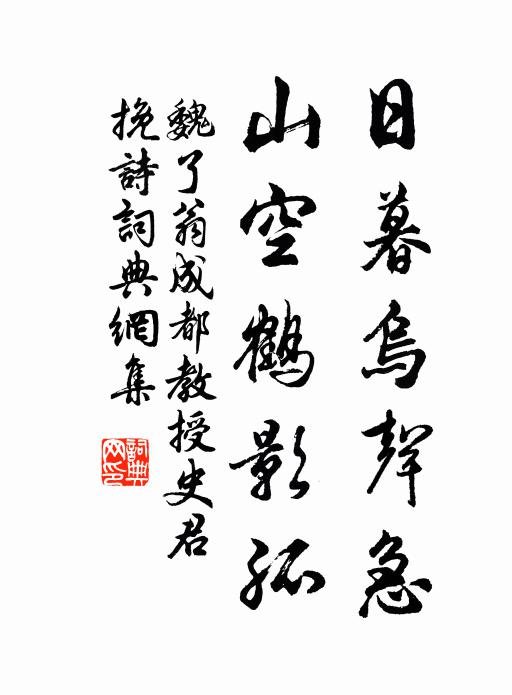 日暮烏聲急
山空鶴影孤
魏了翁成都教授史君
挽詩詞典網集
詞典网印